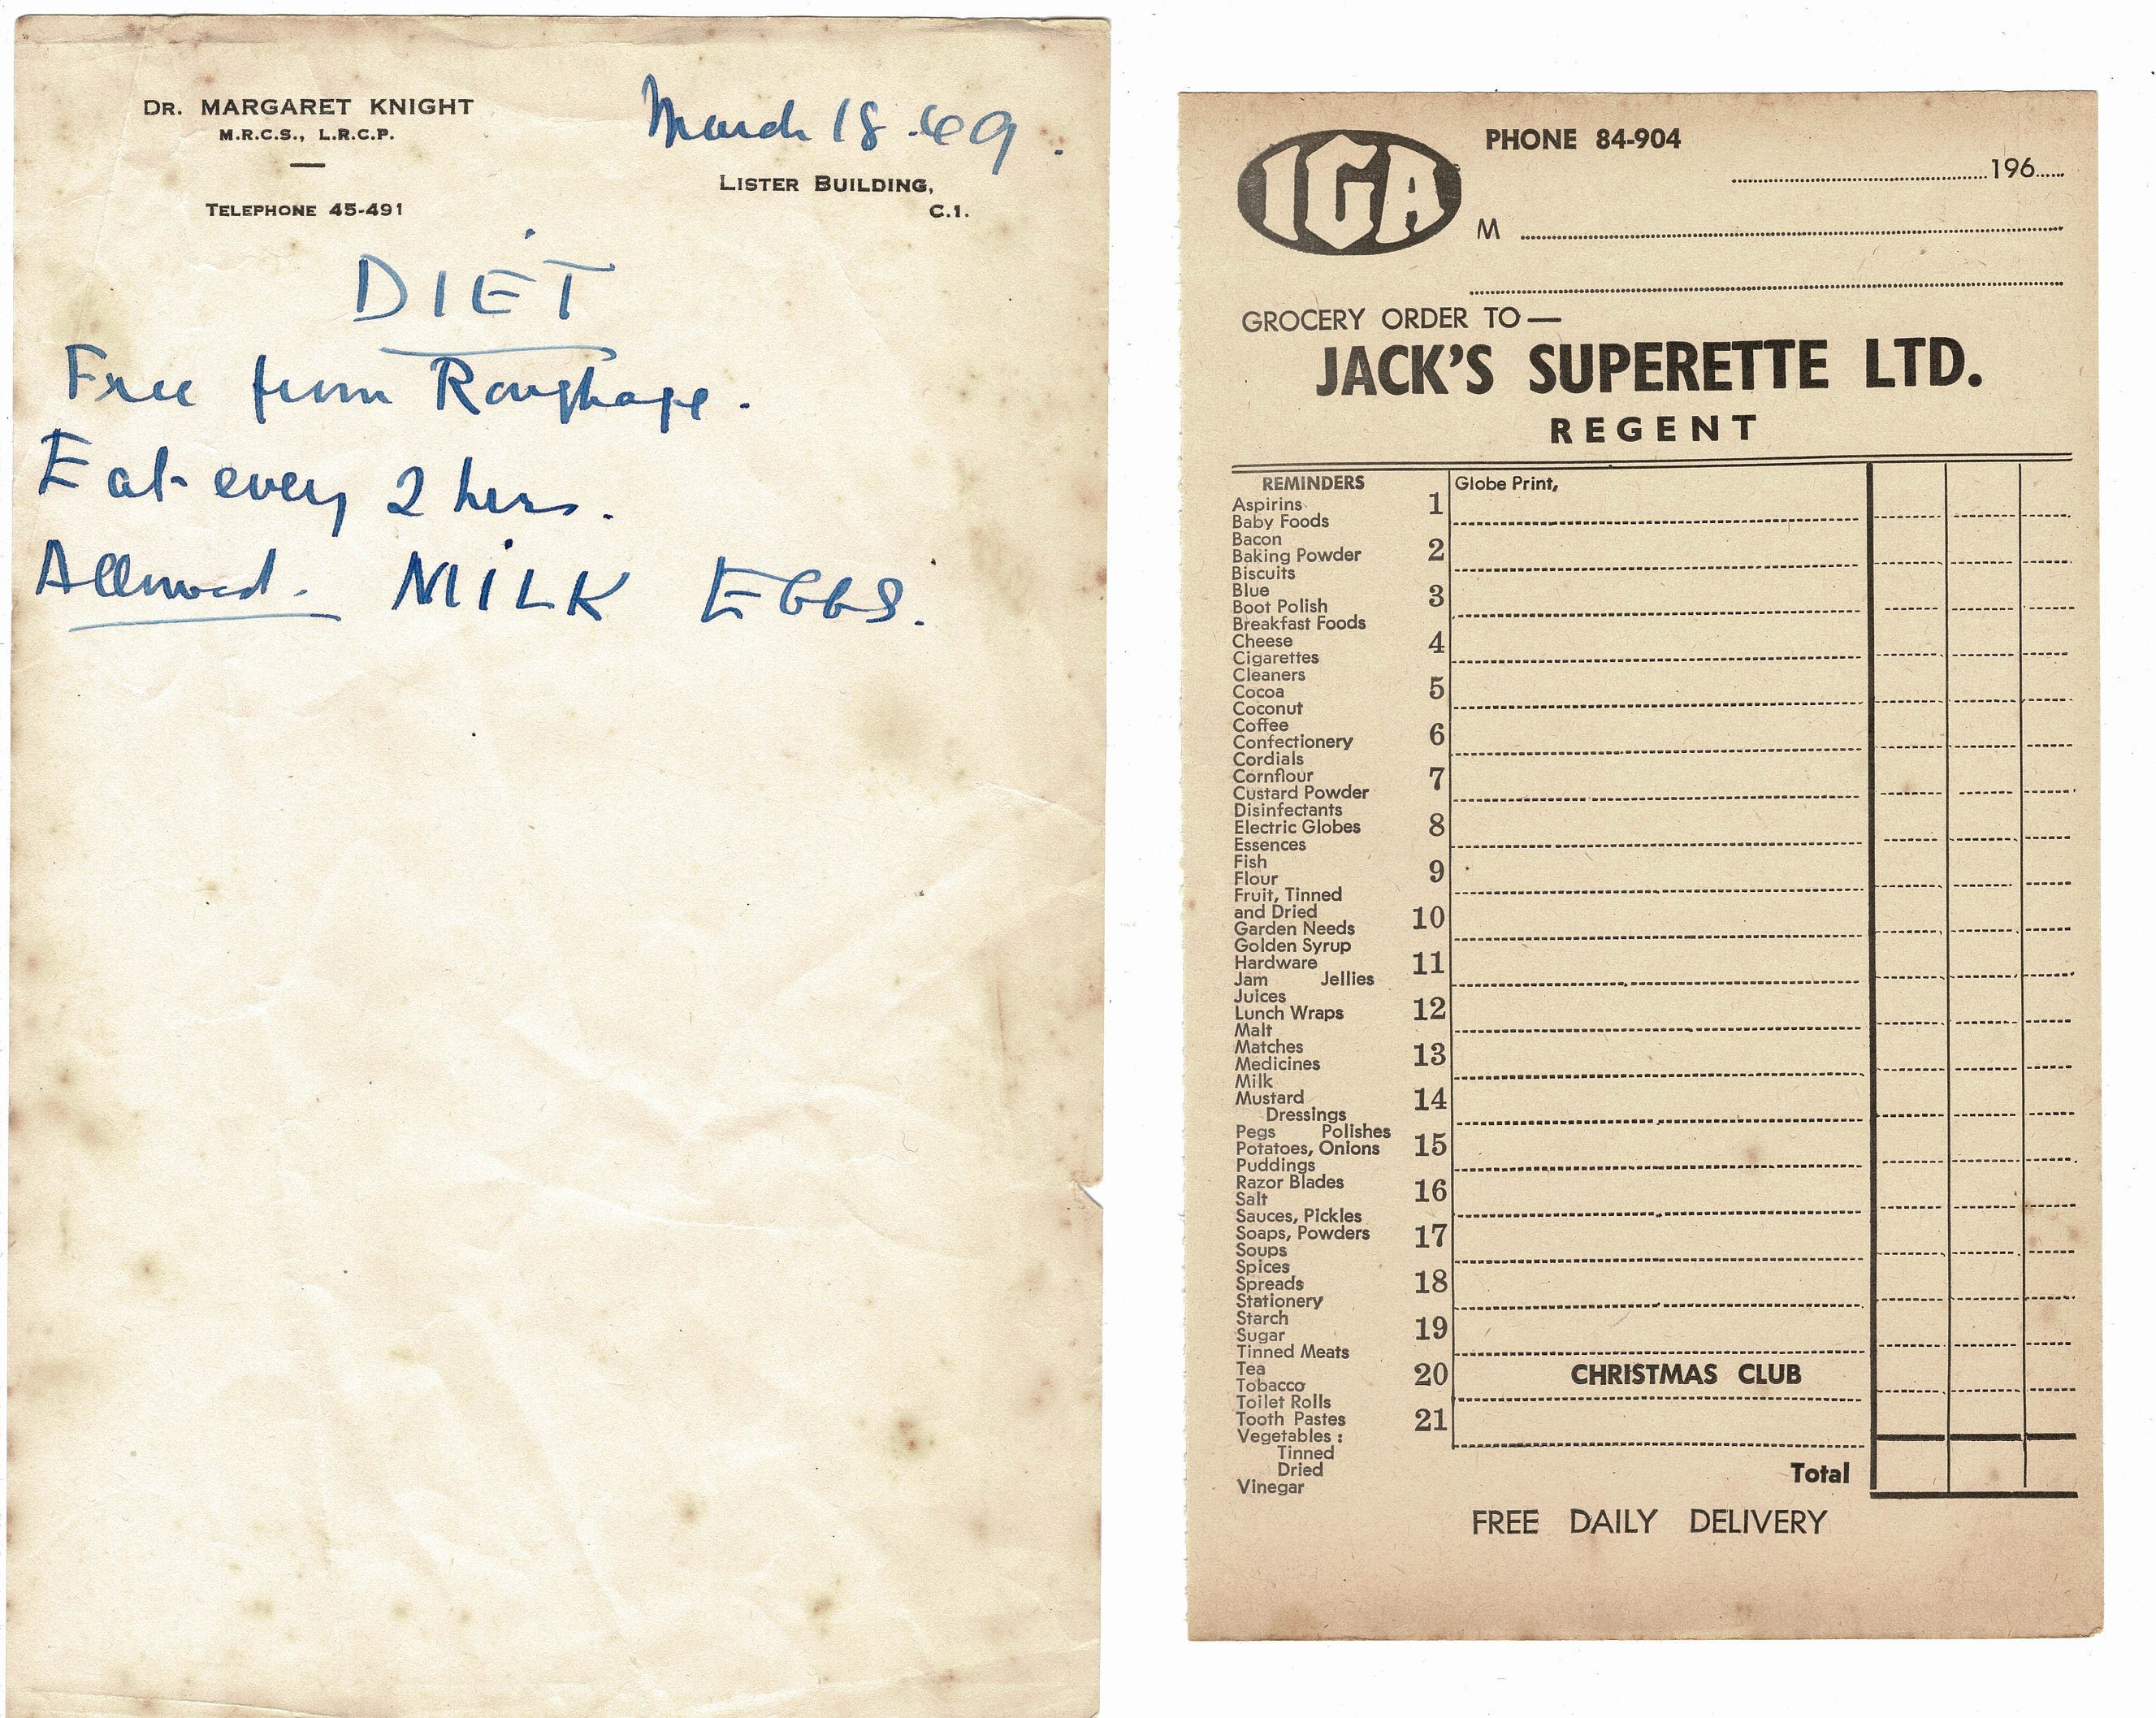 DR. MARGARET KNIGHT
M.R.C.S., L.R.C.P.
TELEPHONE 45-491
March 18.49.
LISTER BUILDING,
C.1.
DIET
Free from Roughage.
Eat every 2 hrs.
Allowed. MILK EGGS.
IGA
PHONE 84-904
196
M
GROCERY ORDER TO—
JACK'S SUPERETTE LTD.
REGENT
REMINDERS
Aspirins
Baby Foods
Bacon
Baking Powder
Biscuits
Blue
Boot Polish
Breakfast Foods
Cheese
Cigarettes
Cleaners
Cocoa
Coconut
Coffee
Confectionery
Cordials
Cornflour
Custard Powder
Disinfectants
Electric Globes
Essences
Fish
Flour
Fruit, Tinned
and Dried
Garden Needs
Golden Syrup
Hardware
Jam Jellies
Juices
Lunch Wraps
Malt
Matches
Medicines
Milk
Mustard
Dressings
Pegs Polishes
Potatoes, Onions
Puddings
Razor Blades
Salt
Sauces, Pickles
Soaps, Powders
Soups
Spices
Spreads
Stationery
Starch
Sugar
Tinned Meats
Tea
Tobacco
Toilet Rolls
Tooth Pastes
Vegetables :
Tinned
Dried
Vinegar
1 Globe Print,
2
3
4
5
6
7
8
9
10
11
12
13
14
15
16
17
18
19
20 CHRISTMAS CLUB
21
Total
FREE DAILY DELIVERY